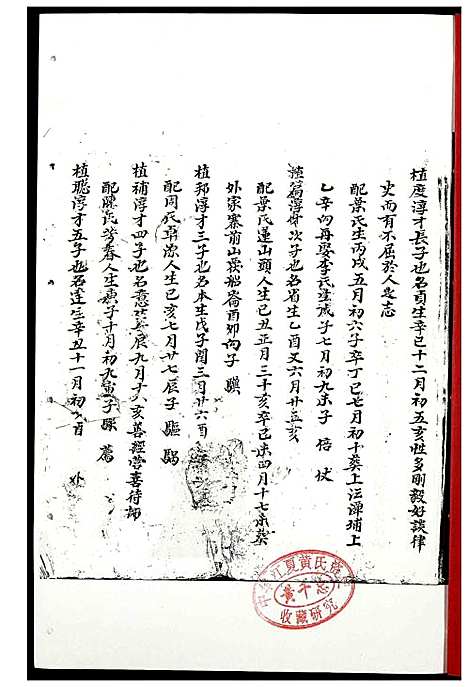 植度淳才長子也名貢生辛巳十二月初五亥性多剛毅好談律
史而有不屈於人之志
配葉氏生丙戌五月初六子辛丁巳七月初十葬上法潭埔上
乙辛向再娶李氏生戊子七月初九未子 倍 伏
植篇淳才次子也名省生乙酉又六月廿五亥
配葉氏蓮山頭人生己丑正月三十亥辛己未四月十七未葬
外家寨前山 船崙酉卯向子 驥
植邦淳才三子也名本生戊子閏三月廿六酉
配周氏 源人生己亥七月廿七辰子 驅
植補淳才四子也名意生 辰九月十六亥善經營喜待
配陳氏芳春人生庚子十月初九 子
植聰淳才五子也名達 辛丑十一月初 酉
江夏黃氏
黃千
收藏研究